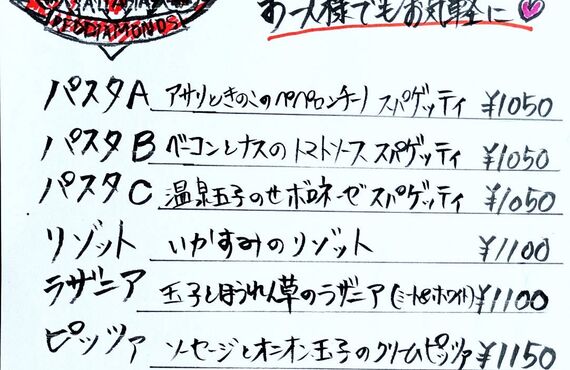 REDDIAMONDS
お一人様でもお気軽に
パスタA アサリときのこのペペロンチーノ スパゲッティ ¥1050
パスタB ベーコンとナスのトマトソース スパゲッティ ¥1050
パスタC 温泉玉子のせボロネーゼスパゲッティ ¥1050
リゾット いかすみのリゾット ¥1100
ラザニア 玉子とほうれん草のラザニア(ミート&ホワイト) ¥1100
ピッツァ ソーセージとオニオン玉子のクリームピッツァ ¥1150